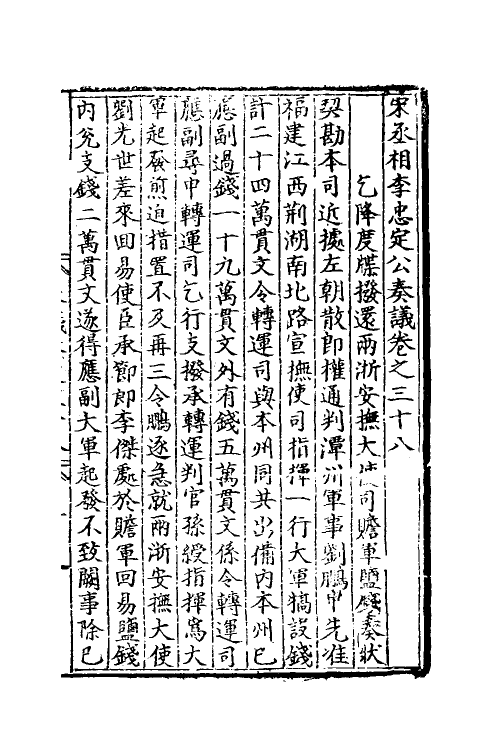 宋丞相李忠定公奏議卷之三十八
乞降度牒撥還兩浙安撫大使司贍軍鹽錢奏狀
契勘本司近據左朝散郎權通判潭州軍事劉鵬申先准
福建江西荆湖南北路宣撫使司指揮一行大軍犒設錢
計二十四萬貫文令轉運司與本州同共出備内本州已
應副過錢一十九萬貫文外有錢五萬貫文係令轉運司
應副尋申轉運司乞行支撥承轉運判官孫綬指揮爲大
軍起發煎迫措置不及再三令鵬逐急就兩浙安撫大使
劉光世差來回易使臣承節郎李傑處於贍軍回易鹽錢
内兊支錢二萬貫文遂得應副大軍起發不致闕事除已